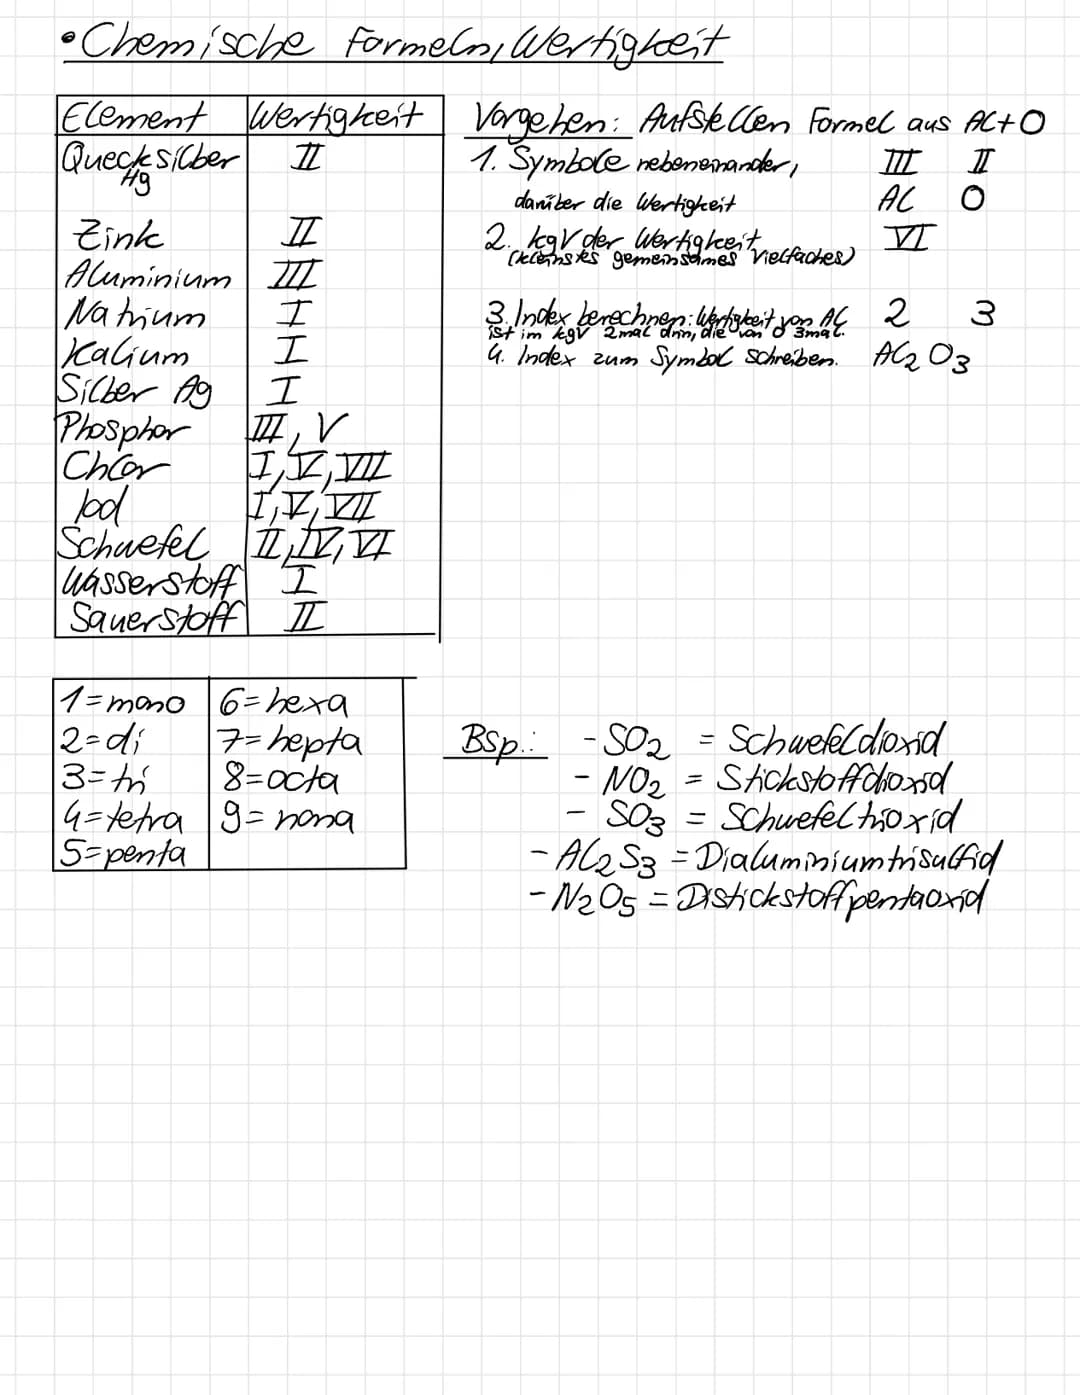 • Chemische Formeln, Wertigkeit
Element Wertigkeit
Quecksilber II
Hg
Zink II
Aluminium III
Natrium I
Kalium I
Silber Ag I
Phosphor III, V
Chlor I, V, VII
Iod I, V, VII
Schwefel II, IV, VI
Wasserstoff I
Sauerstoff II
Vorgehen: Aufstellen Formel aus Al+O
1. Symbole nebeneinander, III II
darüber die Wertigkeit Al O
2. kgV der Wertigkeit VI
(kleinstes gemeinsames Vielfaches)
3. Index berechnen: Wertigkeit von Al 2 3
ist im kgV 2mal drin, die von O 3mal.
4. Index zum Symbol schreiben. Al2O3
1=mono 6=hexa
2=di 7=hepta
3=tri 8=octa
4=tetra 9=nona
5=penta
Bsp.: - SO2 = Schwefeldioxid
- NO2 = Stickstoffdioxid
- SO3 = Schwefeltrioxid
- Al2S3 = Dialuminiumtrisulfid
- N2O5 = Distickstoffpentaoxid